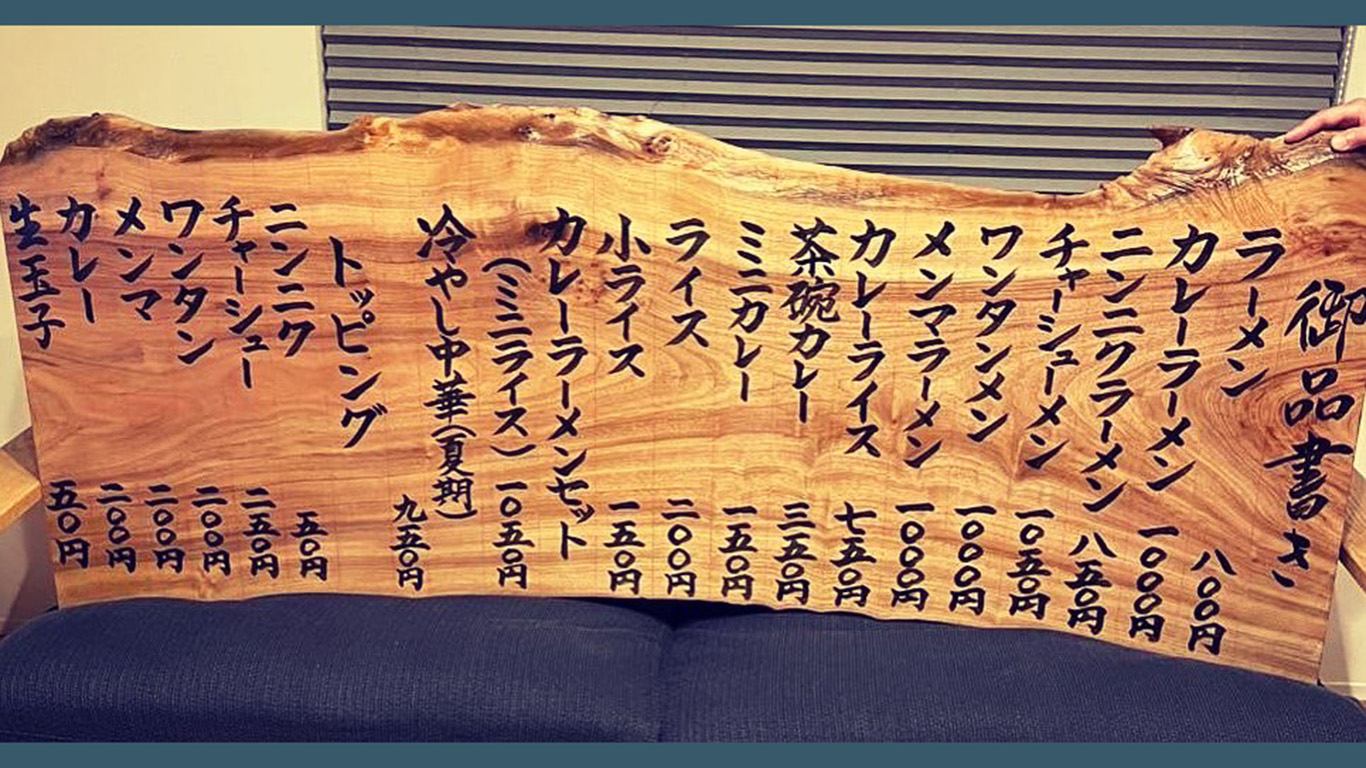 御品書き
ラーメン 八〇〇円
カレーラーメン 一〇〇〇円
ニンニクラーメン 八五〇円
チャーシューメン 一〇五〇円
ワンタンメン 一〇〇〇円
メンマラーメン 一〇〇〇円
カレーライス 七五〇円
茶碗カレー 三五〇円
ミニカレー 一五〇円
ライス 二〇〇円
小ライス 一五〇円
カレーラーメンセット
(ミニライス) 一〇五〇円
冷やし中華(夏期) 九五〇円
トッピング
ニンニク 五〇円
チャーシュー 二五〇円
ワンタン 二〇〇円
メンマ 二〇〇円
カレー 二〇〇円
生玉子 五〇円